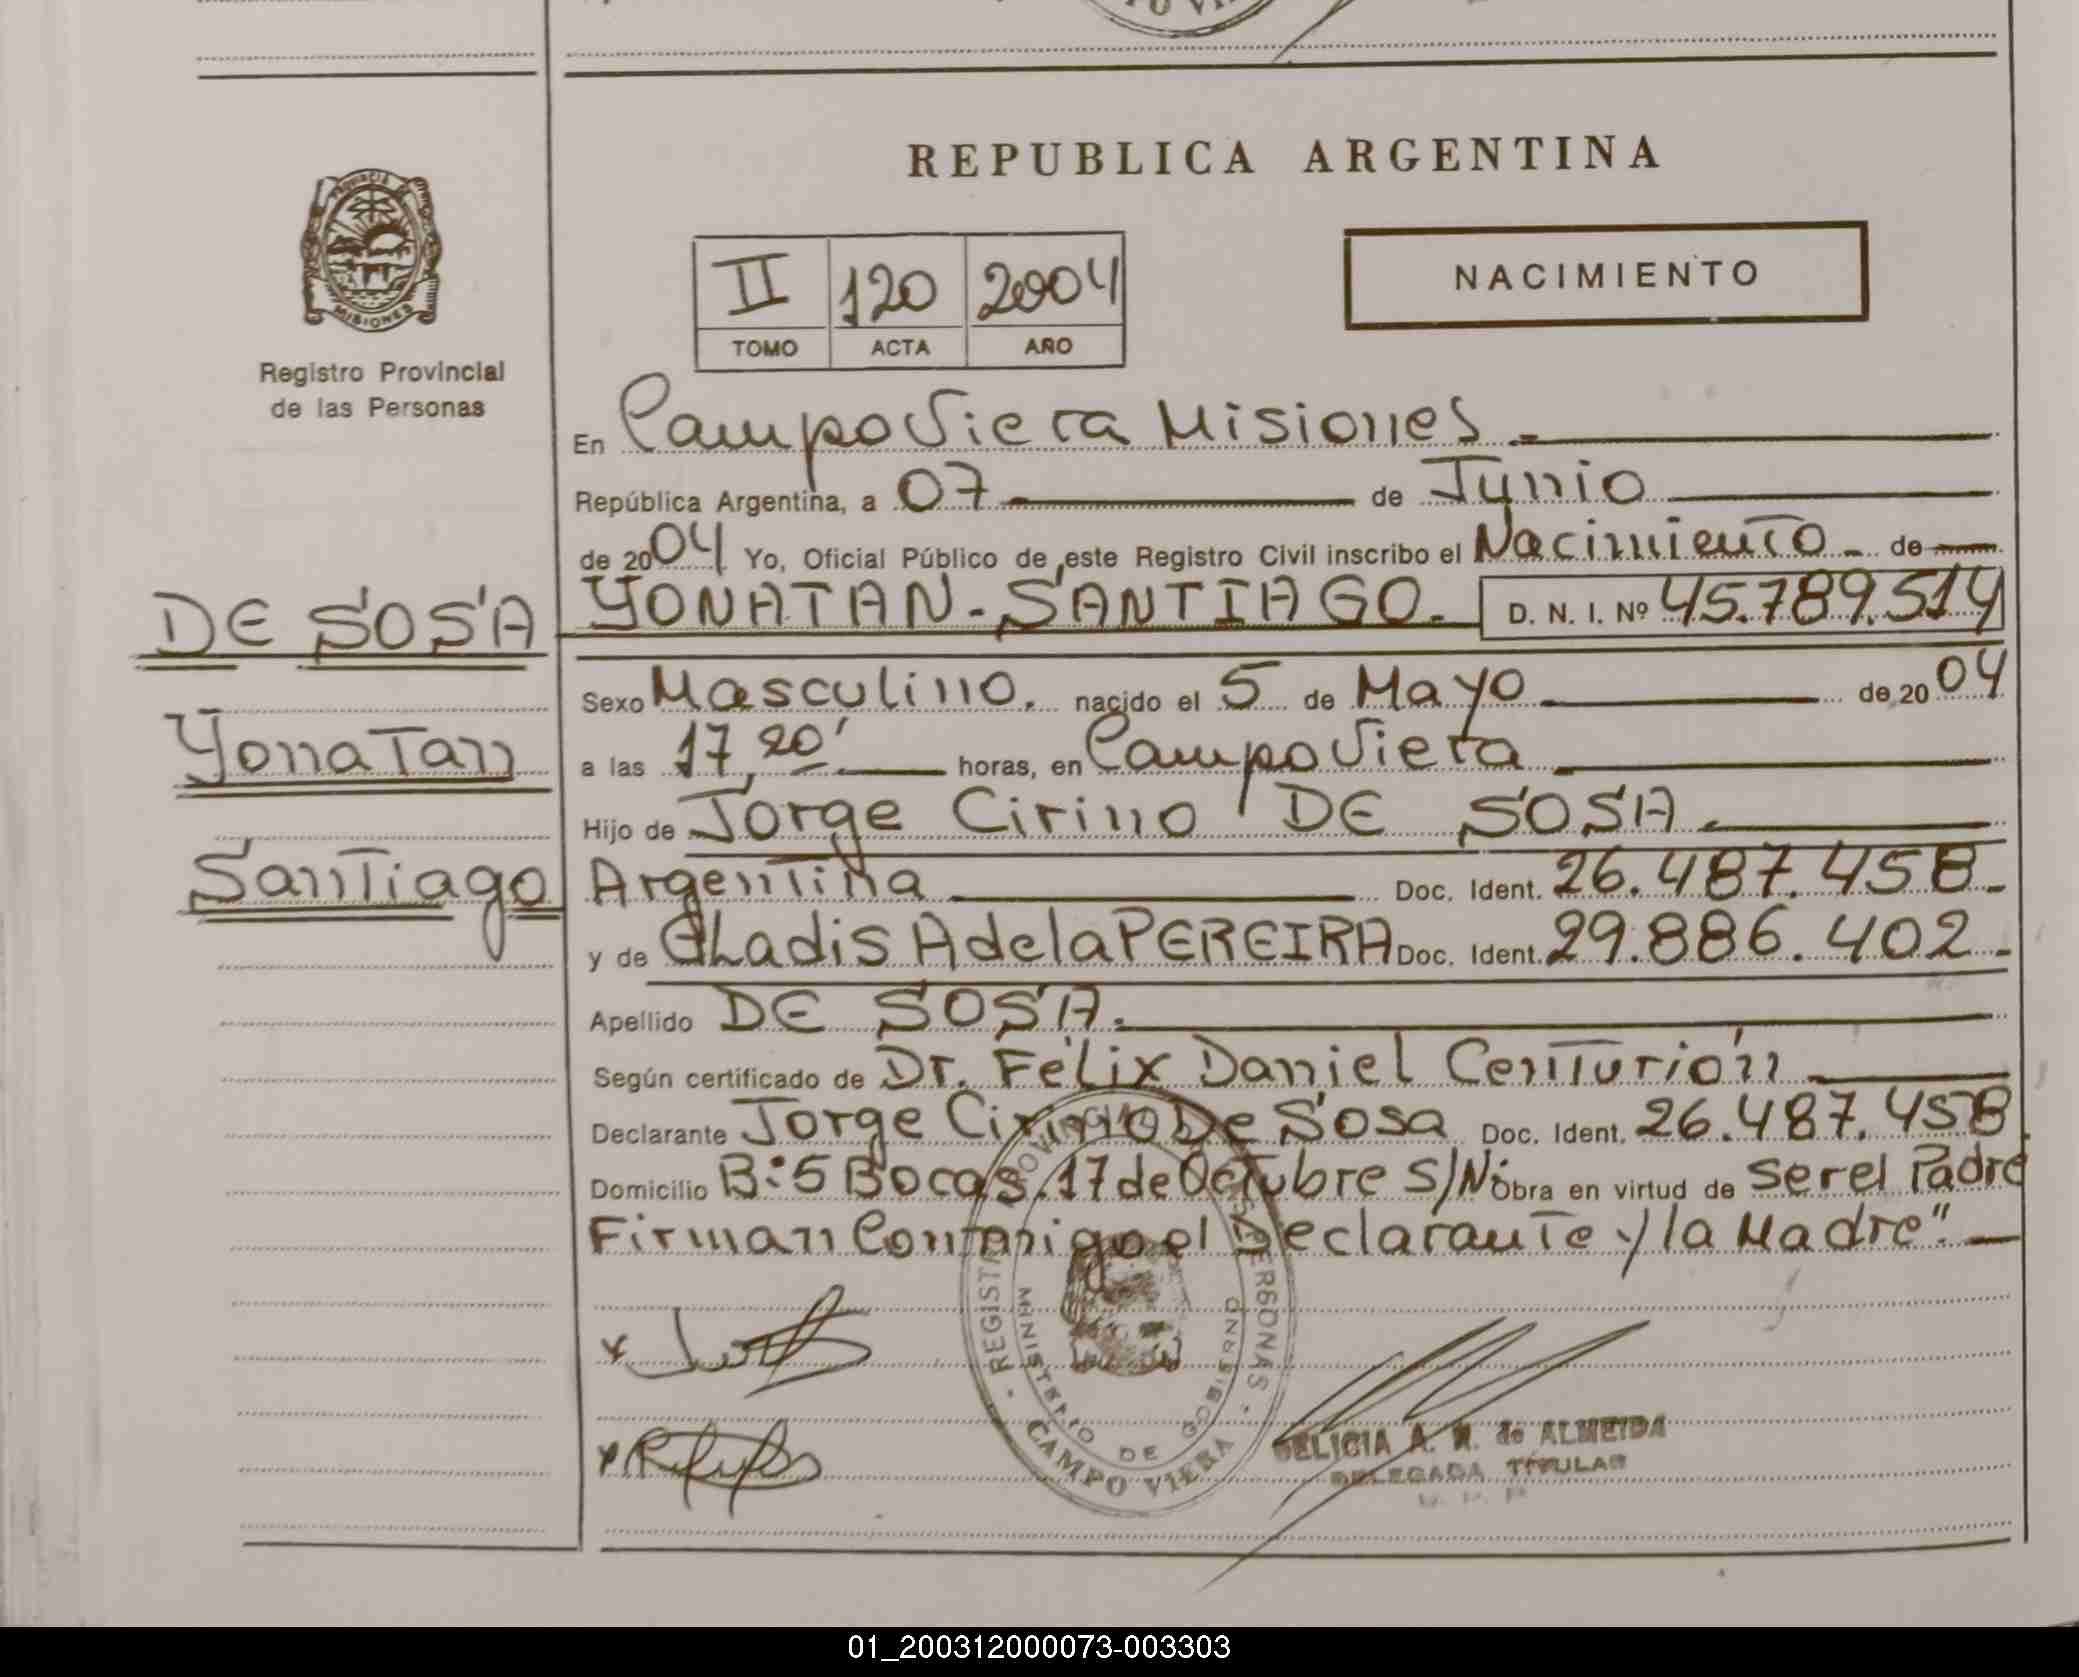 REPUBLICA ARGENTINA
PROVINCIA DE
MISIONES
Registro Provincial
de las Personas
II 120 2004
TOMO ACTA AÑO
NACIMIENTO
En Campo Viera Misiones.-
República Argentina, a 07 de Junio
de 2004 Yo, Oficial Público de este Registro Civil inscribo el Nacimiento - de
DE SOSA
YONATAN - SANTIAGO.- D. N. I. Nº 45.789.514
Sexo Masculino. nacido el 5 de Mayo de 2004
Yonatan
a las 17,20' horas, en Campo Viera
Hijo de Jorge Cirino DE SOSA.
Santiago
Argentina Doc. Ident. 26.487.458-
y de GLadis Adela PEREIRA Doc. Ident. 29.886.402-
Apellido DE SOSA.
Según certificado de Dr. Félix Daniel Centurión
Declarante Jorge Cirino De Sosa Doc. Ident. 26.487.458.
Domicilio B: 5 Bocas. 17 de Octubre S/Nº Obra en virtud de ser el Padre
Firman Conmigo el Declarante y la Madre".
REGISTRO PROVINCIAL DE LAS PERSONAS
MINISTERIO DE GOBIERNO
CAMPO VIERA
DELICIA A. M. de ALMEIDA
DELEGADA TITULAR
01_200312000073-003303